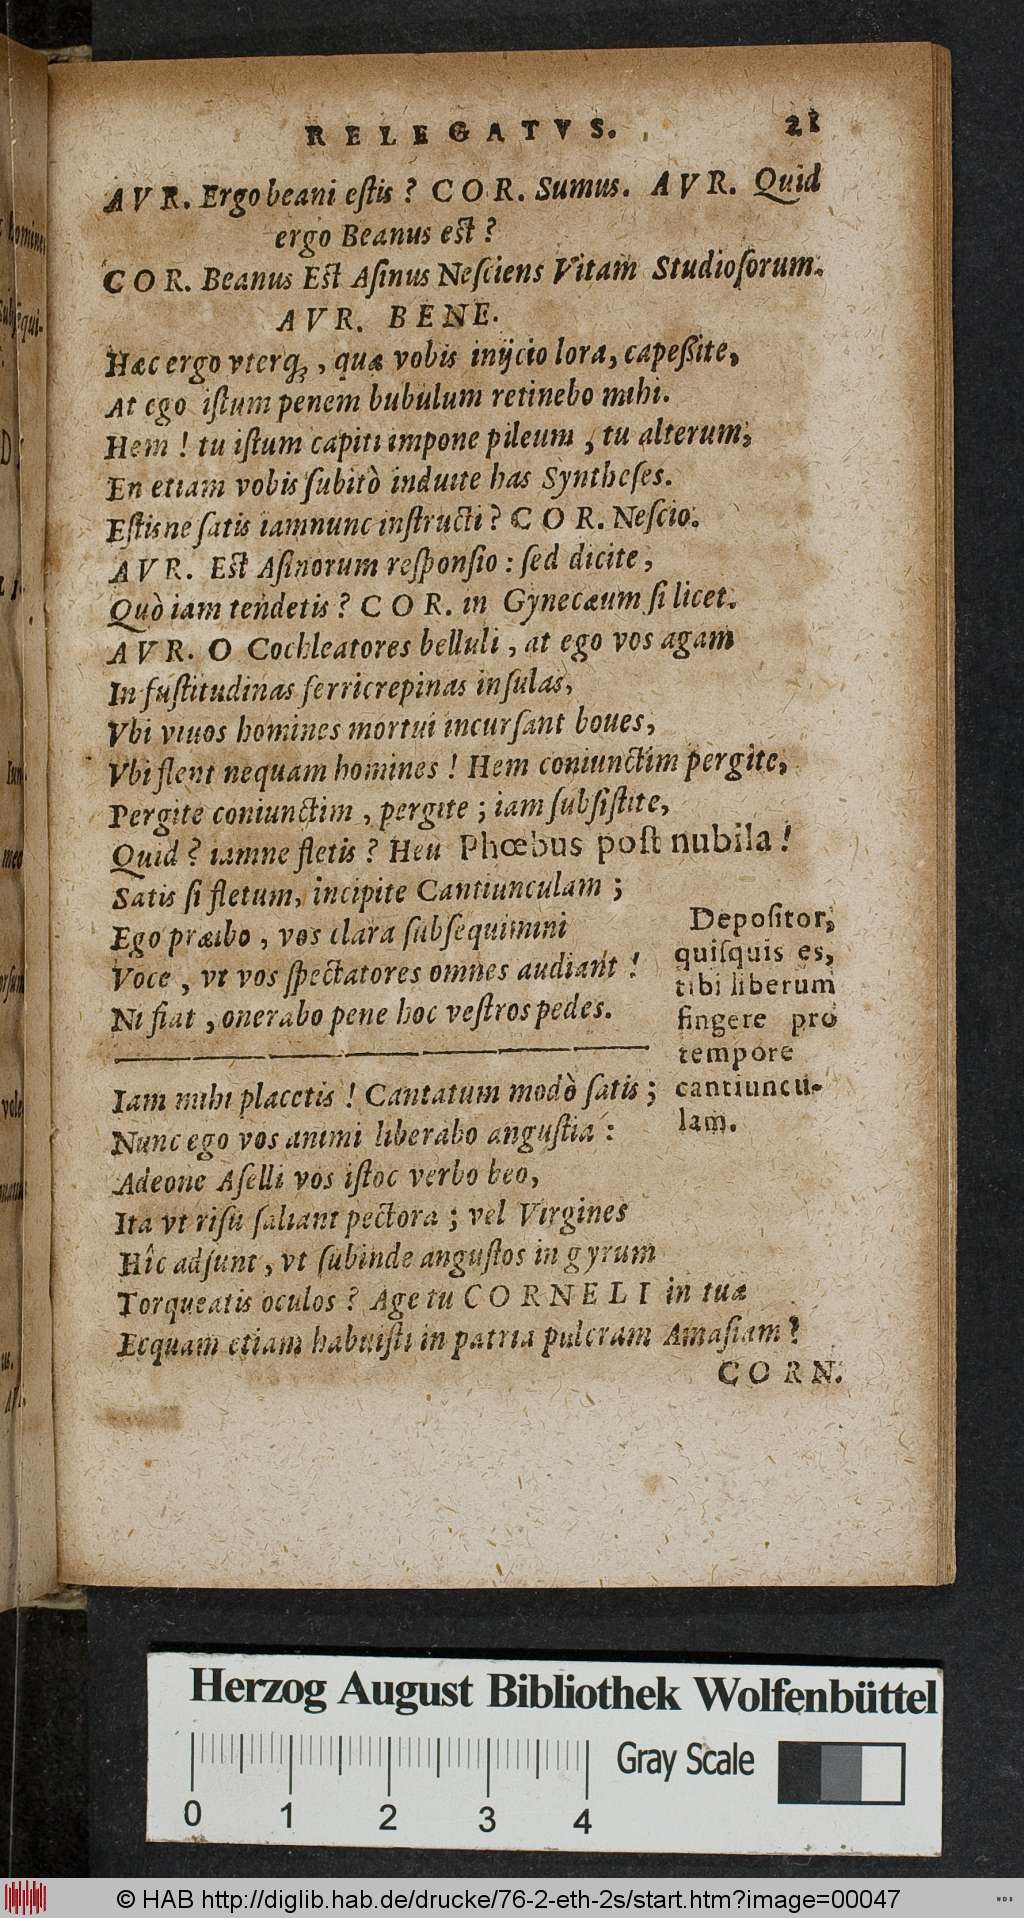 RELEGATVS. 21
AVR. Ergo beani eſtis? COR. Sumus. AVR. Quid
ergo Beanus eſt?
COR. Beanus Eſt Aſinus Neſciens Vitam Studioſorum.
AVR. BENE.
Hæc ergo vterq;, quæ vobis inijcio lora, capeßite,
At ego iſtum penem bubulum retinebo mihi.
Hem! tu iſtum capiti impone pileum, tu alterum,
En etiam vobis ſubitò induite has Syntheſes.
Eſtisne ſatis iamnunc inſtructi? COR. Neſcio.
AVR. Eſt Aſinorum reſponſio: ſed dicite,
Quò iam tendetis? COR. in Gynecæum ſi licet.
AVR. O Cochleatores belluli, at ego vos agam
In fuſtitudinas ferricrepinas inſulas,
Vbi viuos homines mortui incurſant boues,
Vbi flent nequam homines! Hem coniunctim pergite,
Pergite coniunctim, pergite; iam ſubſiſtite,
Quid? iamne fletis? Heu Phœbus poſt nubila!
Satis ſi fletum, incipite Cantiunculam;
Ego præibo, vos clara ſubſequimini
Voce, vt vos ſpectatores omnes audiant!
Ni fiat, onerabo pene hoc veſtros pedes.
Depoſitor,
quiſquis es,
tibi liberum
fingere pro
tempore
cantiuncu-
lam.
Iam mihi placetis! Cantatum modò ſatis;
Nunc ego vos animi liberabo anguſtia:
Adeone Aſelli vos iſtoc verbo beo,
Ita vt riſu ſaliant pectora; vel Virgines
Hîc adſunt, vt ſubinde anguſtos in gyrum
Torqueatis oculos? Age tu CORNELI in tua
Ecquam etiam habuiſti in patria pulcram Amaſiam?
CORN.
Herzog August Bibliothek Wolfenbüttel
Gray Scale
0 1 2 3 4
© HAB http://diglib.hab.de/drucke/76-2-eth-2s/start.htm?image=00047